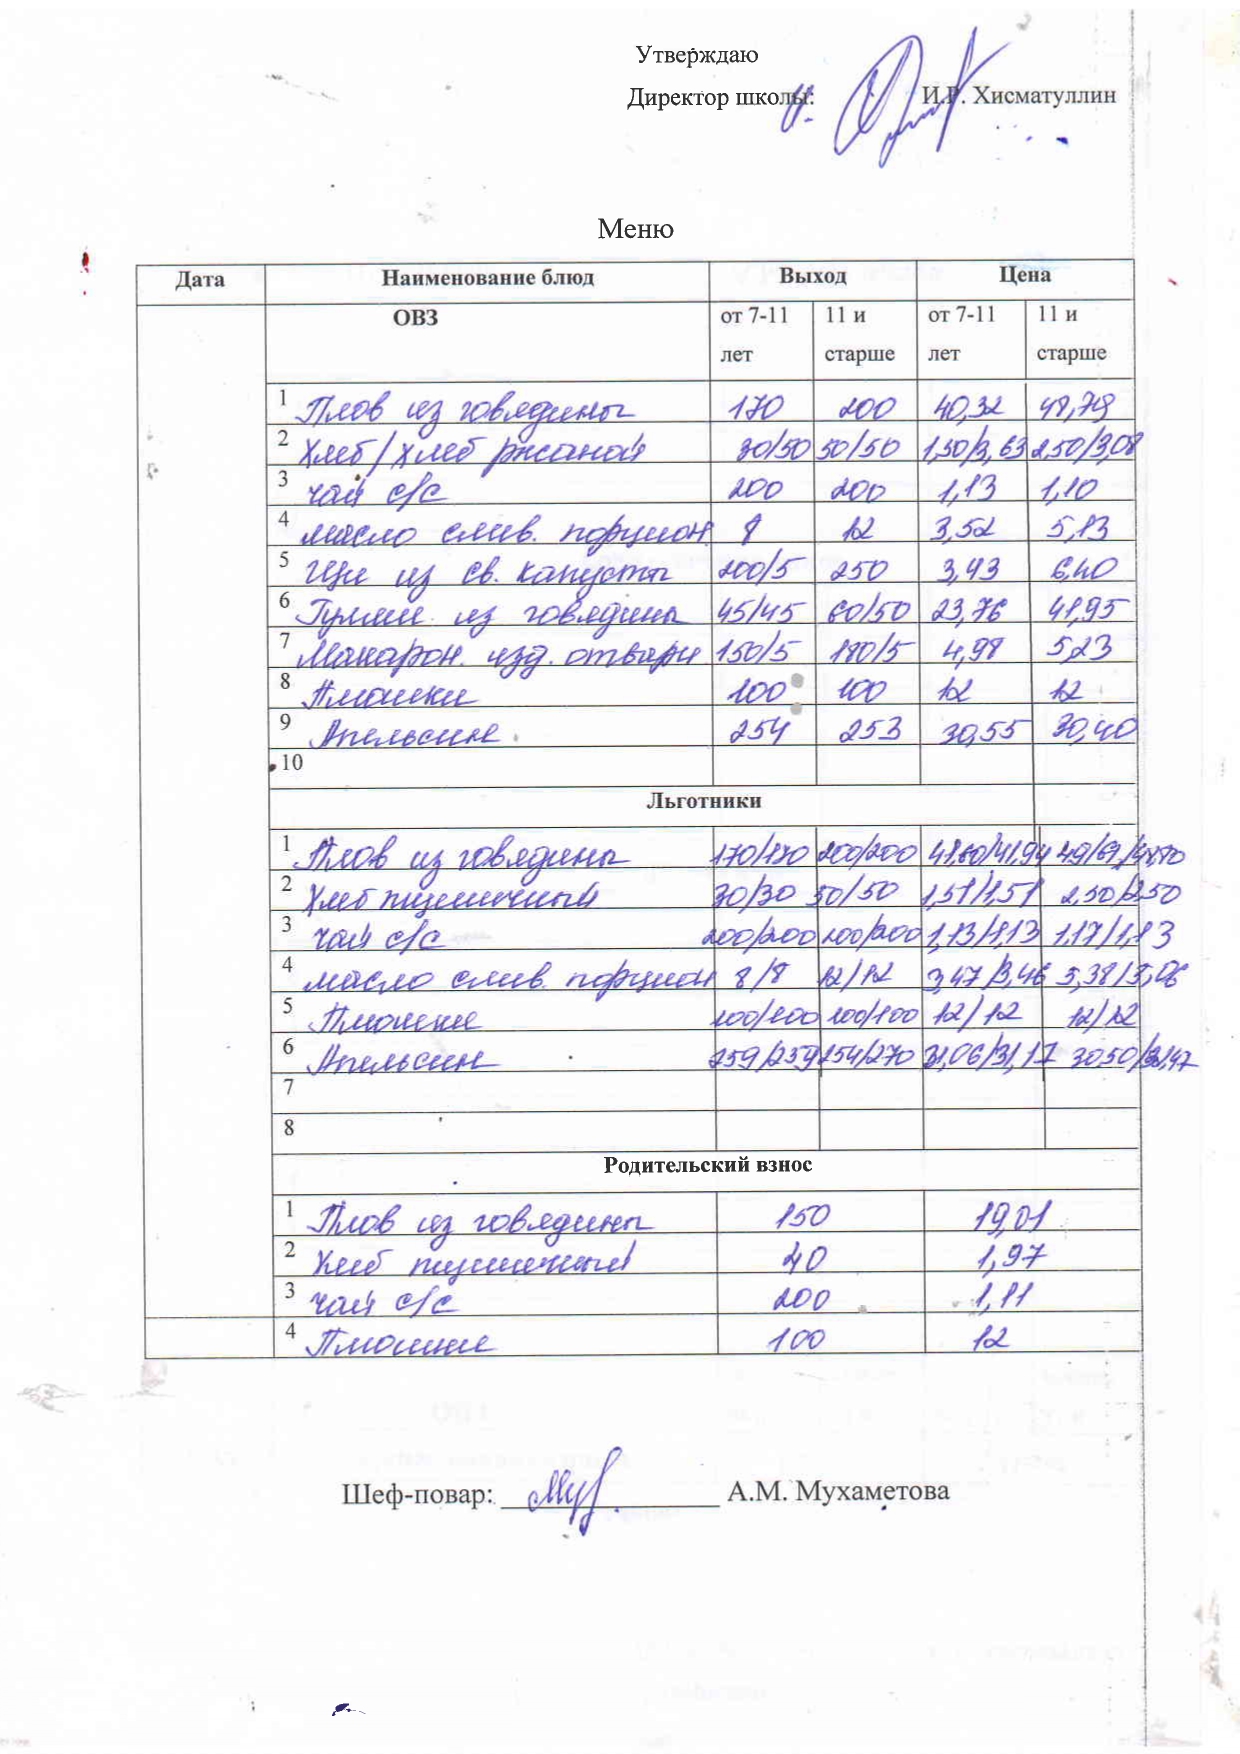 Утверждаю
Директор школы: И.Р. Хисматуллин
Меню
Дата Наименование блюд Выход Цена
ОВЗ от 7-11 лет 11 и старше от 7-11 лет 11 и старше
1 Плов из говядины 170 200 40,32 48,79
2 Хлеб/хлеб ржаной 30/50 50/50 1,50/3,63 2,50/3,08
3 чай с/с 200 200 1,13 1,10
4 масло слив. порцион. 8 12 3,52 5,13
5 Щи из св. капусты 200/5 250 3,93 6,40
6 Гуляш из говядины 45/45 60/50 23,76 41,95
7 Макарон. изд. отварн 150/5 180/5 4,98 5,23
8 100 100 12 12
9 Апельсин 254 253 30,55 30,40
10
Льготники
1 Плов из говядины 170/170 200/200 41,60/41,94
2 Хлеб пшеничный 30/30 50/50 1,51/1,51 2,50/2,50
3 чай с/с 200/200 200/200 1,13/1,13 1,17/1,13
4 масло слив. порцион 8/8 12/12 3,47/3,46 5,38/5,06
5 100/100 100/100 12/12 12/12
6 Апельсин 259/259 254/270 31,06/31,12 30,50/32,47
7
8
Родительский взнос
1 Плов из говядины 150 19,01
2 Хлеб пшеничный 40 1,97
3 чай с/с 200 1,11
4 100 12
Шеф-повар: А.М. Мухаметова